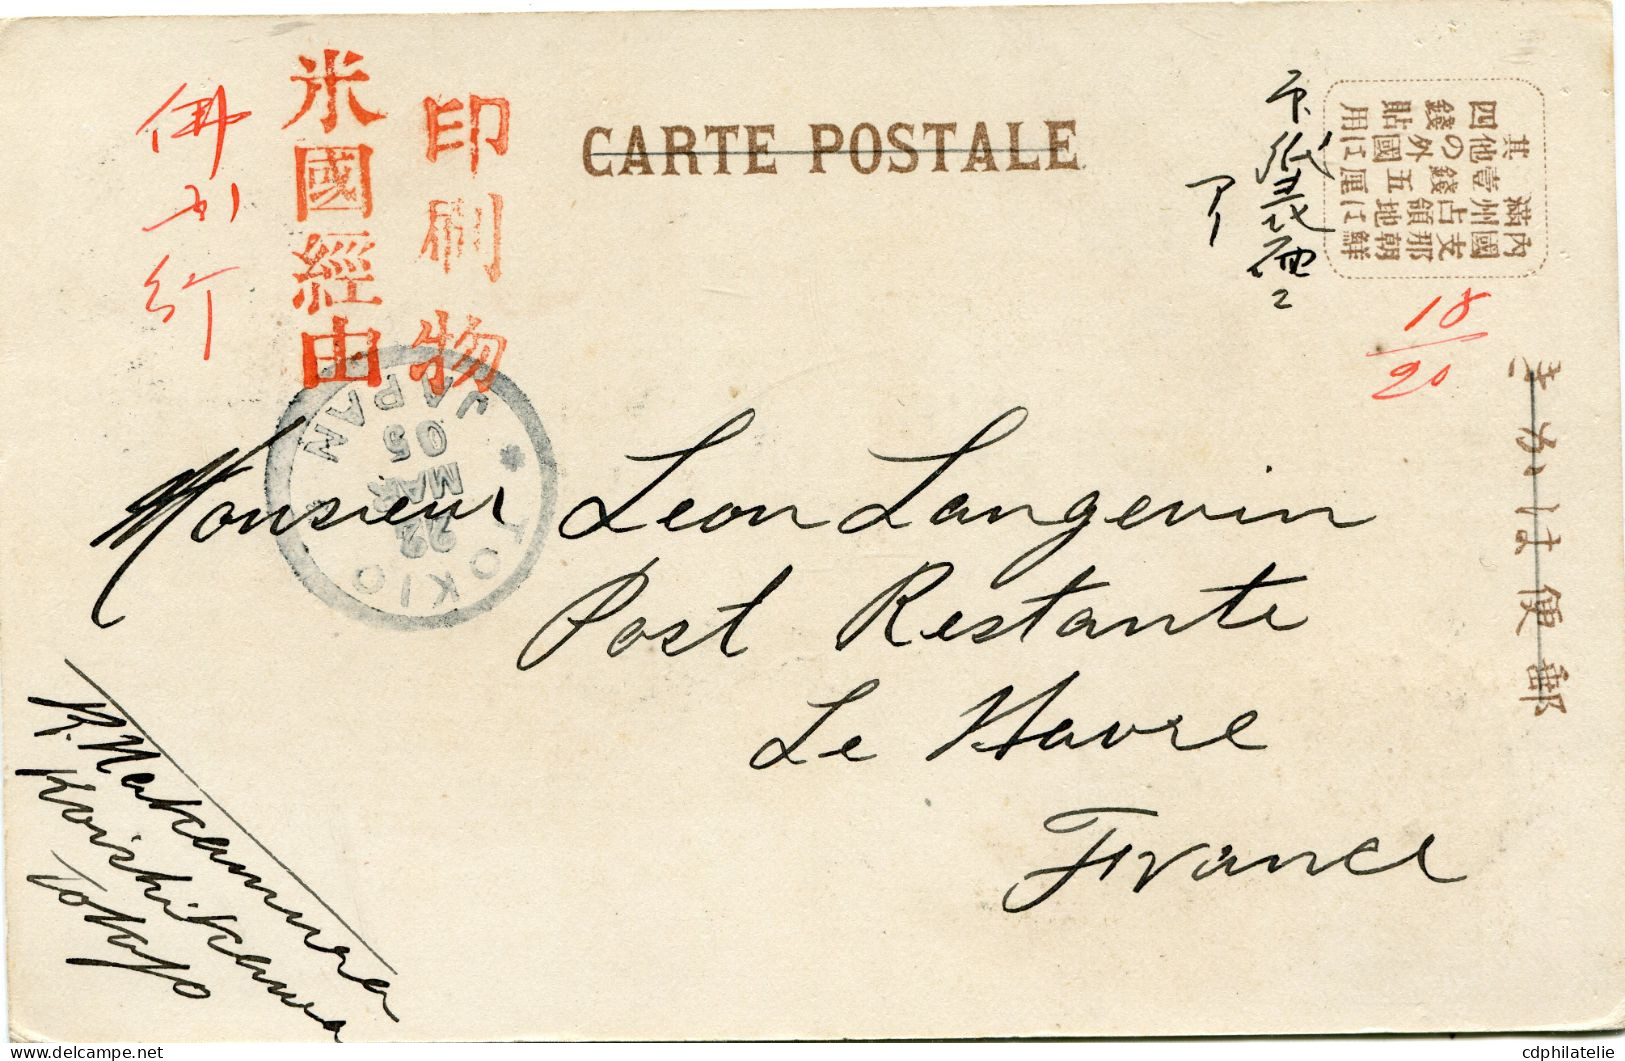 CARTE POSTALE
印刷物
米國經由
佛
行
内國支那朝鮮
滿州占領地には
其他壹錢五厘
四錢の外國は貼用
18
20
郵便はかき
JAPAN
05
MAR
22
TOKIO
Monsieur Leon Langevin
Post Restante
Le Havre
France
K. Nakamura
Koishikawa
Tokyo
cdphilatelie